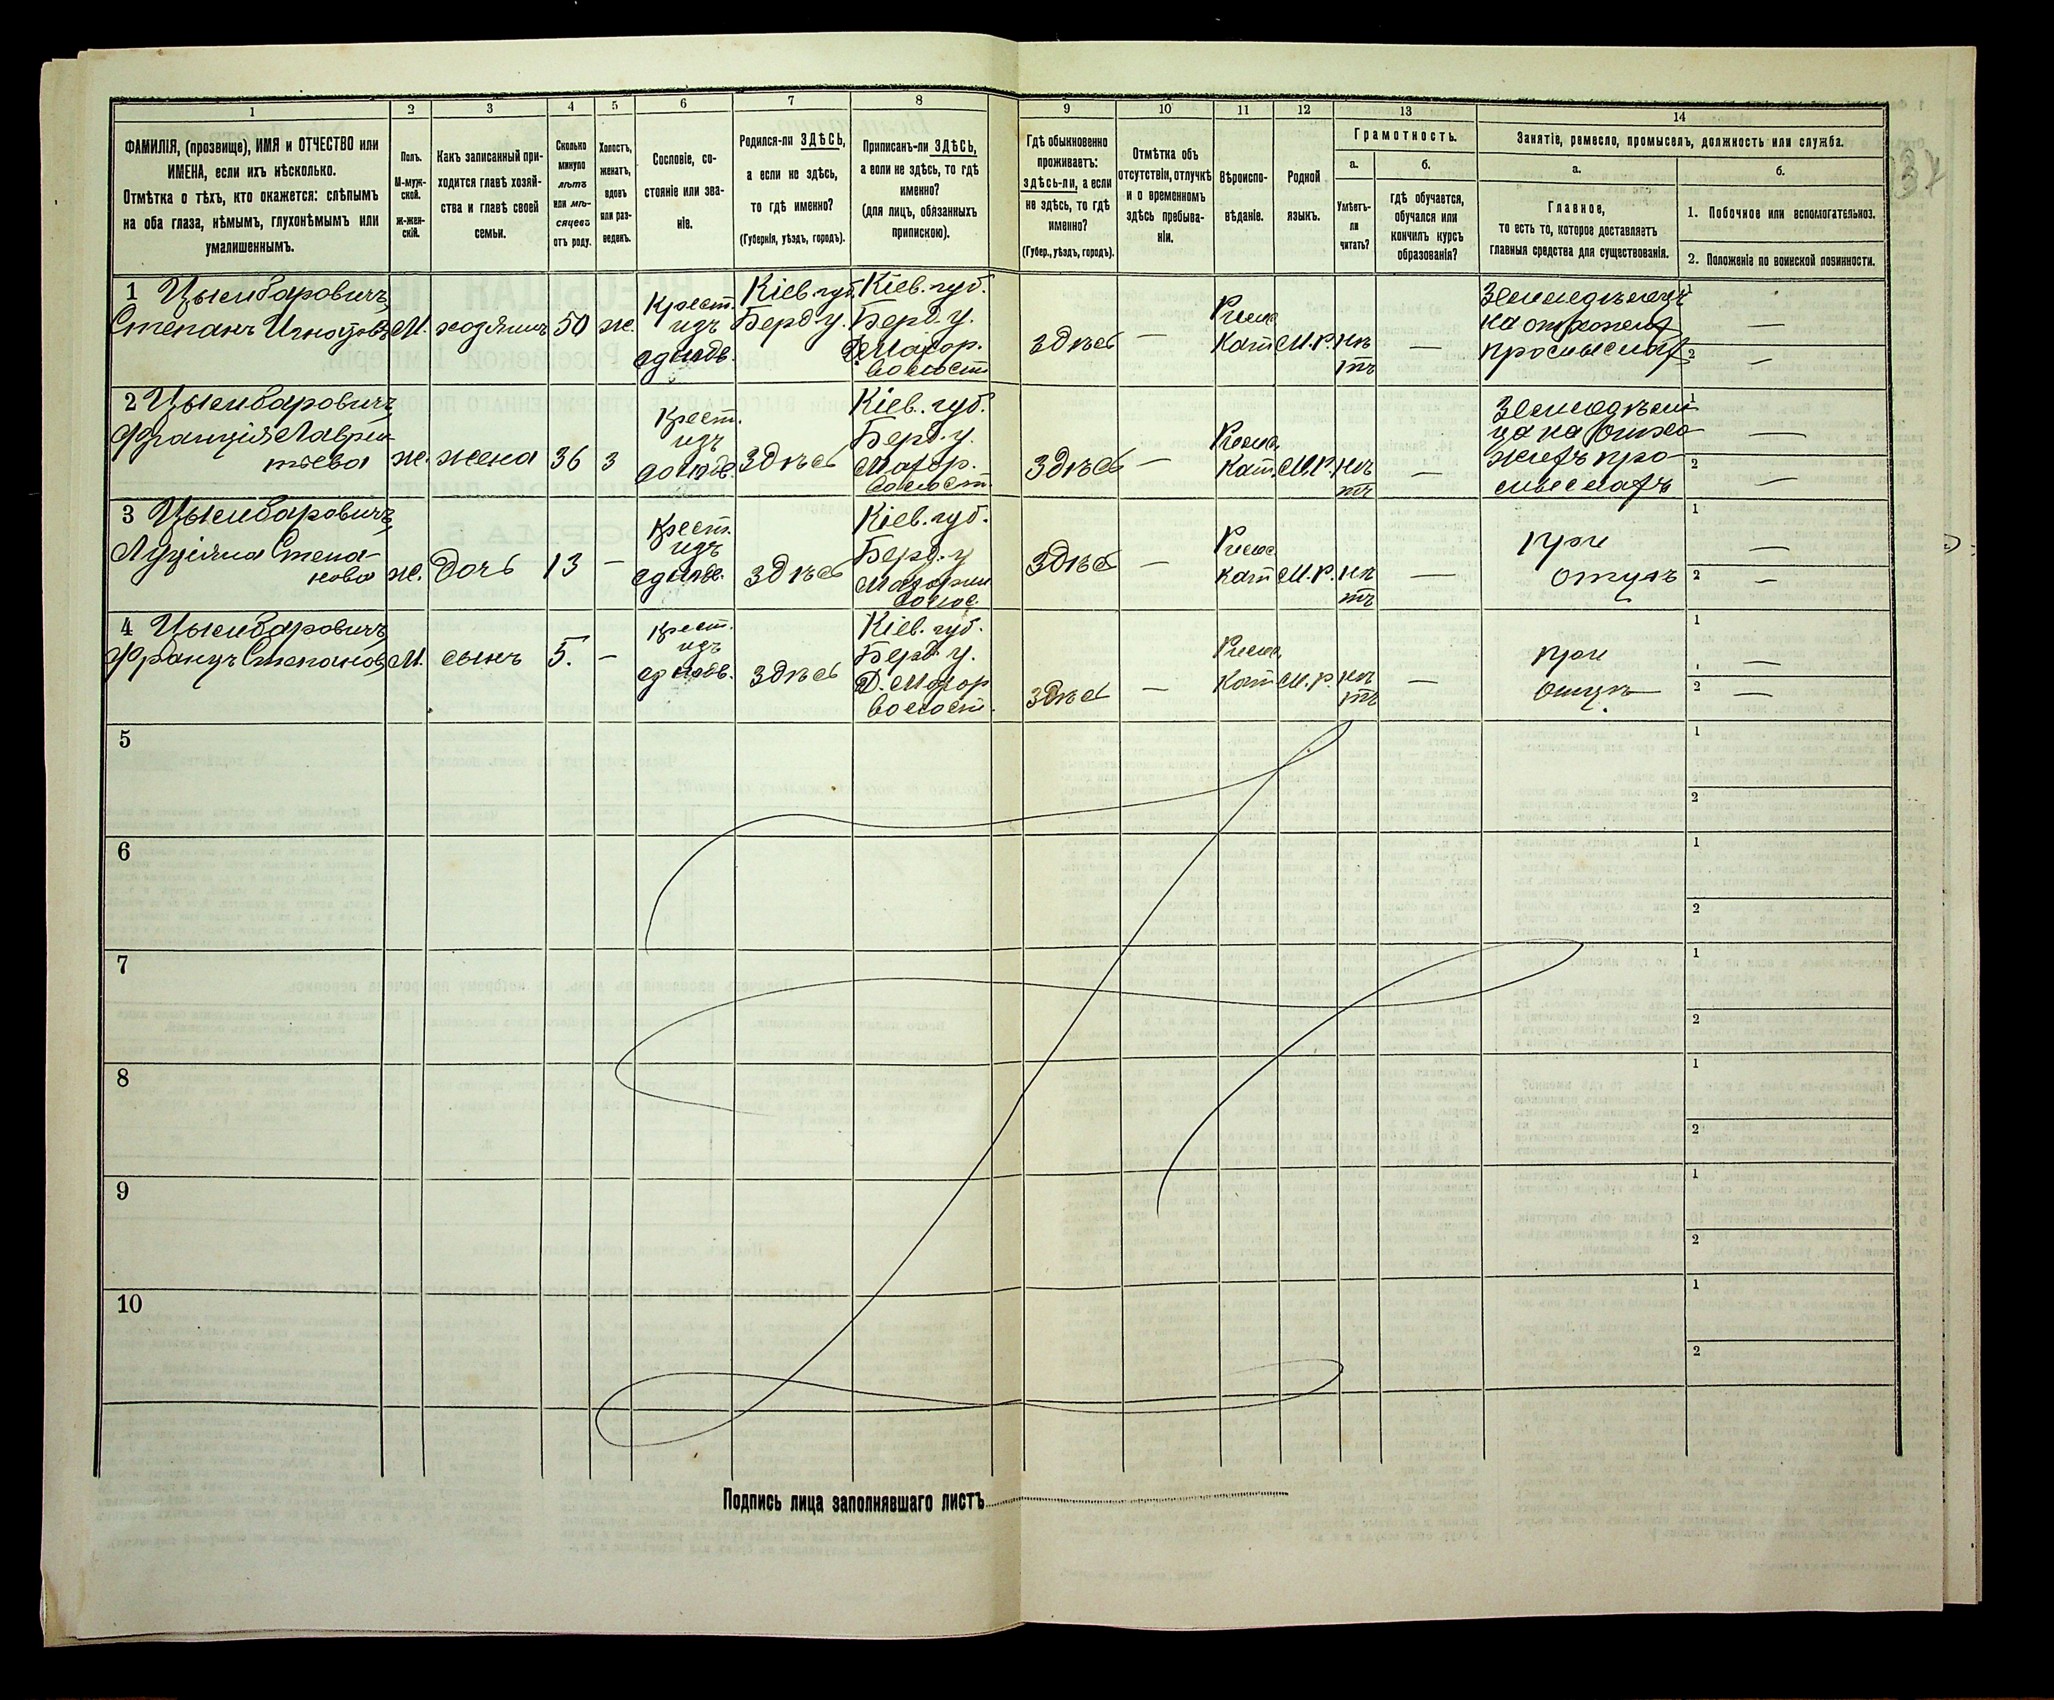 1 2 3 4 5 6 7 8 9 10 11 12 13 14
ФАМИЛІЯ, (прозвище), ИМЯ и ОТЧЕСТВО или
ИМЕНА, если ихъ нѣсколько.
Отмѣтка о тѣхъ, кто окажется: слѣпымъ
на оба глаза, нѣмымъ, глухонѣмымъ или
умалишеннымъ.
Полъ.
М-муж-
ской.
Ж-жен-
скій.
Какъ записанный при-
ходится главѣ хозяй-
ства и главѣ своей
семьи.
Сколько
минуло
лѣтъ
или мѣ-
сяцевъ
отъ роду.
Холостъ,
женатъ,
вдовъ
или раз-
веденъ.
Сословіе, со-
стояніе или зва-
ніе.
Родился-ли ЗДѢСЬ,
а если не здѣсь,
то гдѣ именно?
(Губернія, уѣздъ, городъ).
Приписанъ-ли ЗДѢСЬ,
а если не здѣсь, то гдѣ
именно?
(для лицъ, обязанныхъ
припискою).
Гдѣ обыкновенно
проживаетъ:
здѣсь-ли, а если
не здѣсь, то гдѣ
именно?
(Губер., уѣздъ, городъ).
Отмѣтка объ
отсутствіи, отлучкѣ
и о временномъ
здѣсь пребыва-
ніи.
Вѣроиспо-
вѣданіе.
Родной
языкъ.
Грамотность.
а.
Умѣетъ-
ли
читать?
б.
гдѣ обучается,
обучался или
кончилъ курсъ
образованія?
Занятіе, ремесло, промыселъ, должность или служба.
а.
Главное,
то есть то, которое доставляетъ
главныя средства для существованія.
б.
1. Побочное или вспомогательноз.
2. Положеніе по воинской повинности.
1 Цымбаровичъ
Степанъ
М.
хозяинъ
50
ж.
Крест.
изъ
однодв.
Кіев. губ.
Берд. у.
Кіев. губ.
Берд. у.
волост
здѣсь
—
Римс.
Кат
М. Р.
нѣ
тъ
—
Земледѣлецъ
—
2
—
2 Цымбаровичъ
ж.
жена
36
з
Крест.
изъ
однодв.
здѣсь
Кіев. губ.
Берд. у.
волост.
здѣсь
—
Римс.
Кат.
М. Р.
нѣ
тъ
—
1
—
2
—
3 Цымбаровичъ
Степа-
нова
ж.
дочь
13
—
Крест.
изъ
однодв.
здѣсь
Кіев. губ.
Берд. у
волос.
здѣсь
—
Римс.
Кат
М. Р.
нѣ
тъ
—
при
отцѣ
1
—
2
—
4 Цымбаровичъ
Францъ Степановъ
М.
сынъ
5.
—
Крест.
изъ
однодв.
здѣсь
Кіев. губ.
Берд. у.
волост.
здѣсь
—
Римс.
Кат
М. Р.
нѣ
тъ
—
при
отцѣ
1
—
2
—
5
1
2
6
1
2
7
1
2
8
1
2
9
1
2
10
1
2
Подпись лица заполнявшаго листъ